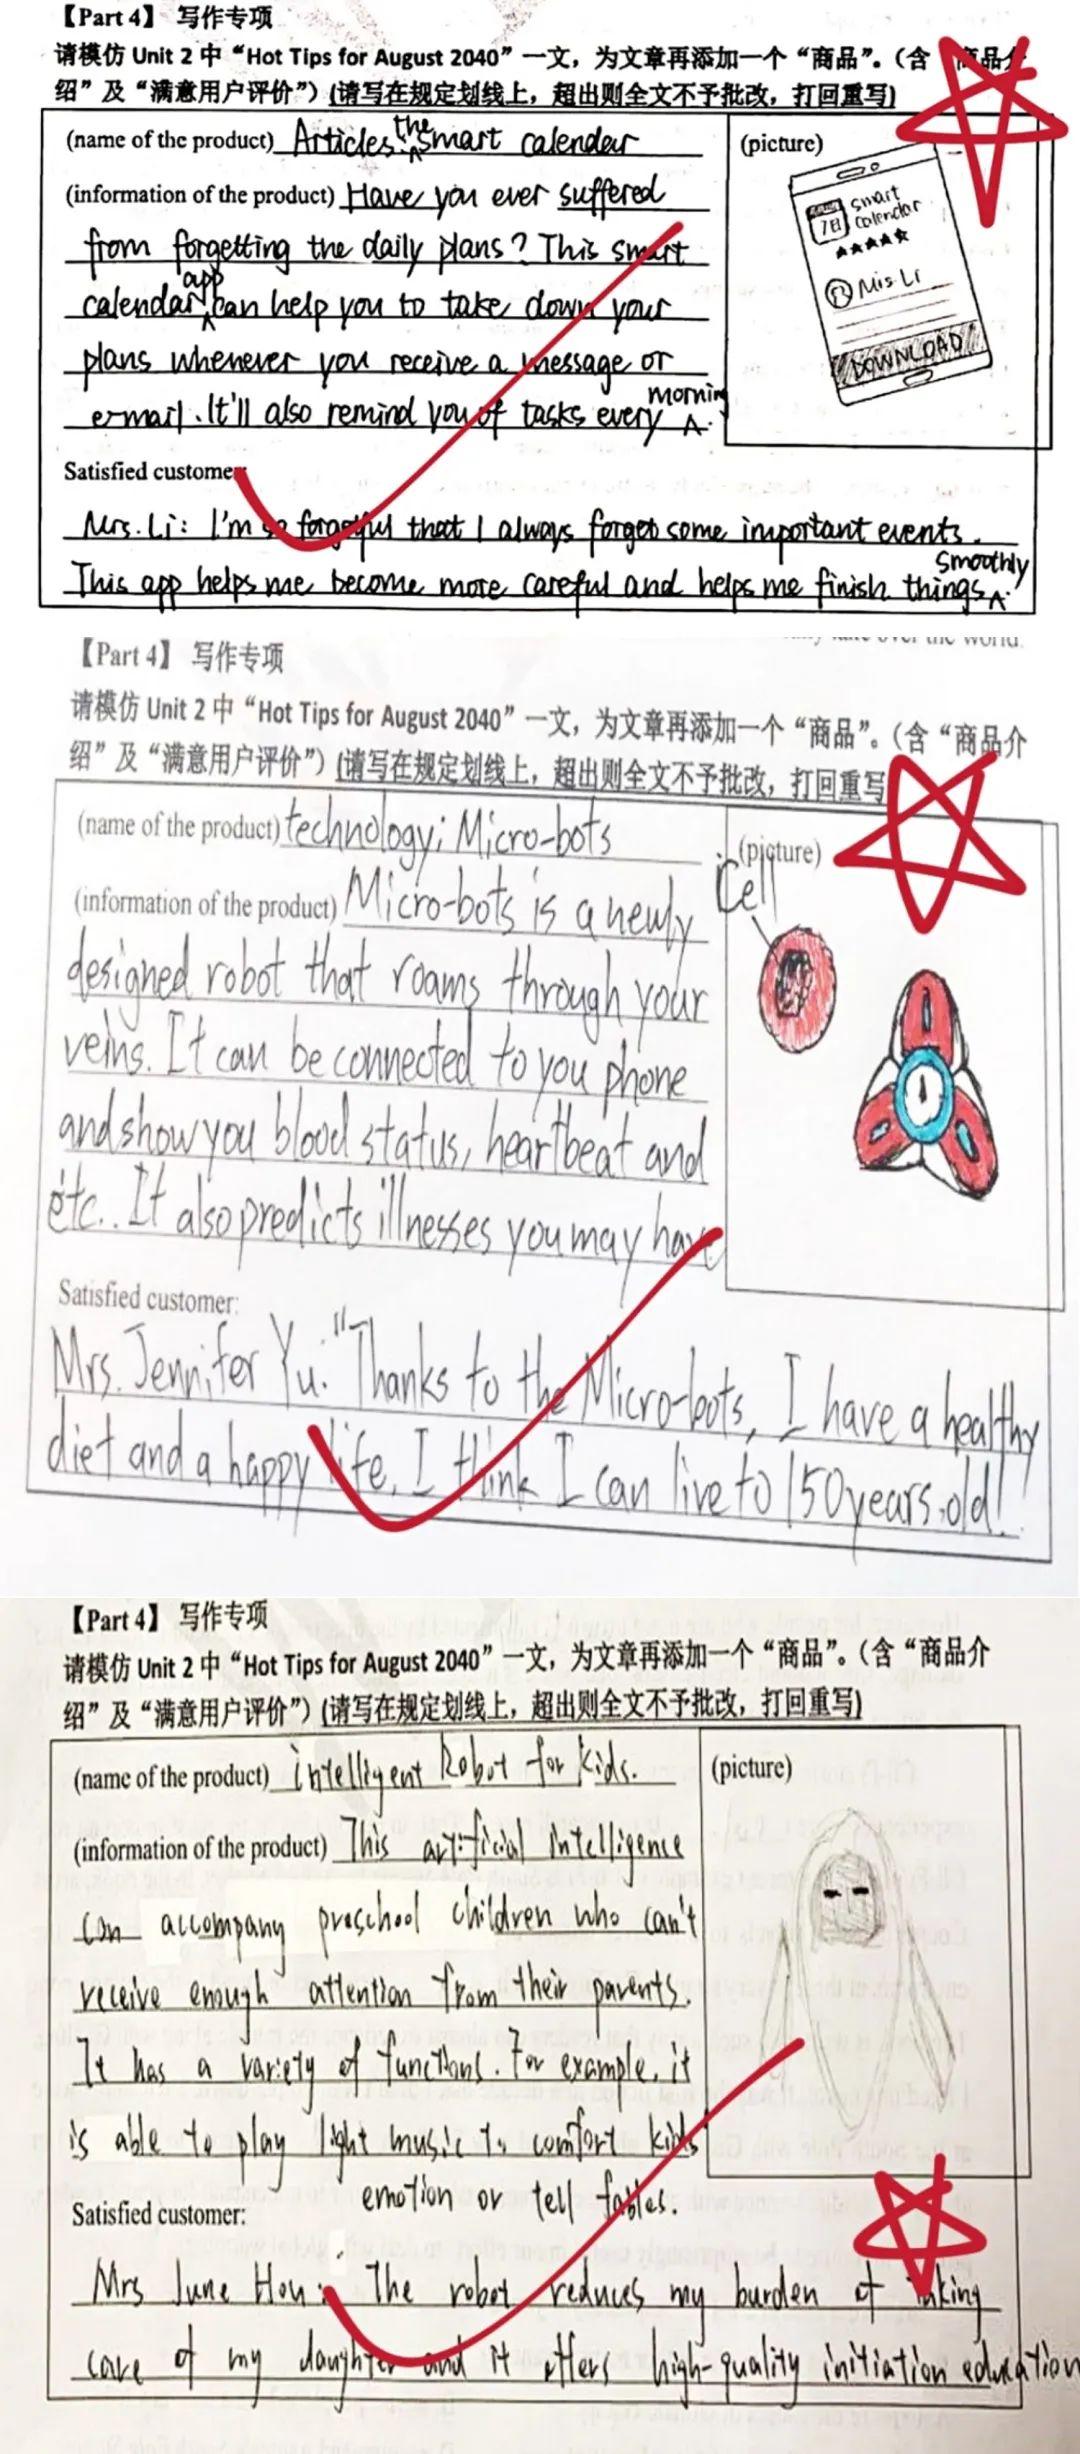 【Part 4】 写作专项
请模仿 Unit 2 中“Hot Tips for August 2040”一文，为文章再添加一个“商品”。（含“商品介
绍”及“满意用户评价”）(请写在规定划线上，超出则全文不予批改，打回重写)
(name of the product) Articles: the smart calendar
(picture)
(information of the product) Have you ever suffered
from forgetting the daily plans? This smart
calendar app can help you to take down your
plans whenever you receive a message or
e-mail. It'll also remind you of tasks every morning.
smart
calendar
7日
★★★★★
Mis Li
DOWNLOAD
Satisfied customer:
Mrs. Li: I'm so forgetful that I always forget some important events.
This app helps me become more careful and helps me finish things smoothly.
take over the world.
【Part 4】 写作专项
请模仿 Unit 2 中“Hot Tips for August 2040”一文，为文章再添加一个“商品”。（含“商品介
绍”及“满意用户评价”）(请写在规定划线上，超出则全文不予批改，打回重写
(name of the product) technology: Micro-bots
(picture)
Cell
(information of the product) Micro-bots is a newly
designed robot that roams through your
veins. It can be connected to you phone
and show you blood status, heartbeat and
etc.. It also predicts illnesses you may have
Satisfied customer:
Mrs. Jennifer Yu: "Thanks to the Micro-bots, I have a healthy
diet and a happy life, I think I can live to 150 years old!
【Part 4】 写作专项
请模仿 Unit 2 中“Hot Tips for August 2040”一文，为文章再添加一个“商品”。（含“商品介
绍”及“满意用户评价”）(请写在规定划线上，超出则全文不予批改，打回重写)
(name of the product) intelligent Robot for kids.
(picture)
(information of the product) This artificial intelligence
can accompany preschool children who can't
receive enough attention from their parents.
It has a variety of functions. For example, it
is able to play light music to comfort kids
emotion or tell fables.
Satisfied customer:
Mrs June Hou: The robot reduces my burden of taking
care of my daughter and it offers high-quality initiation education